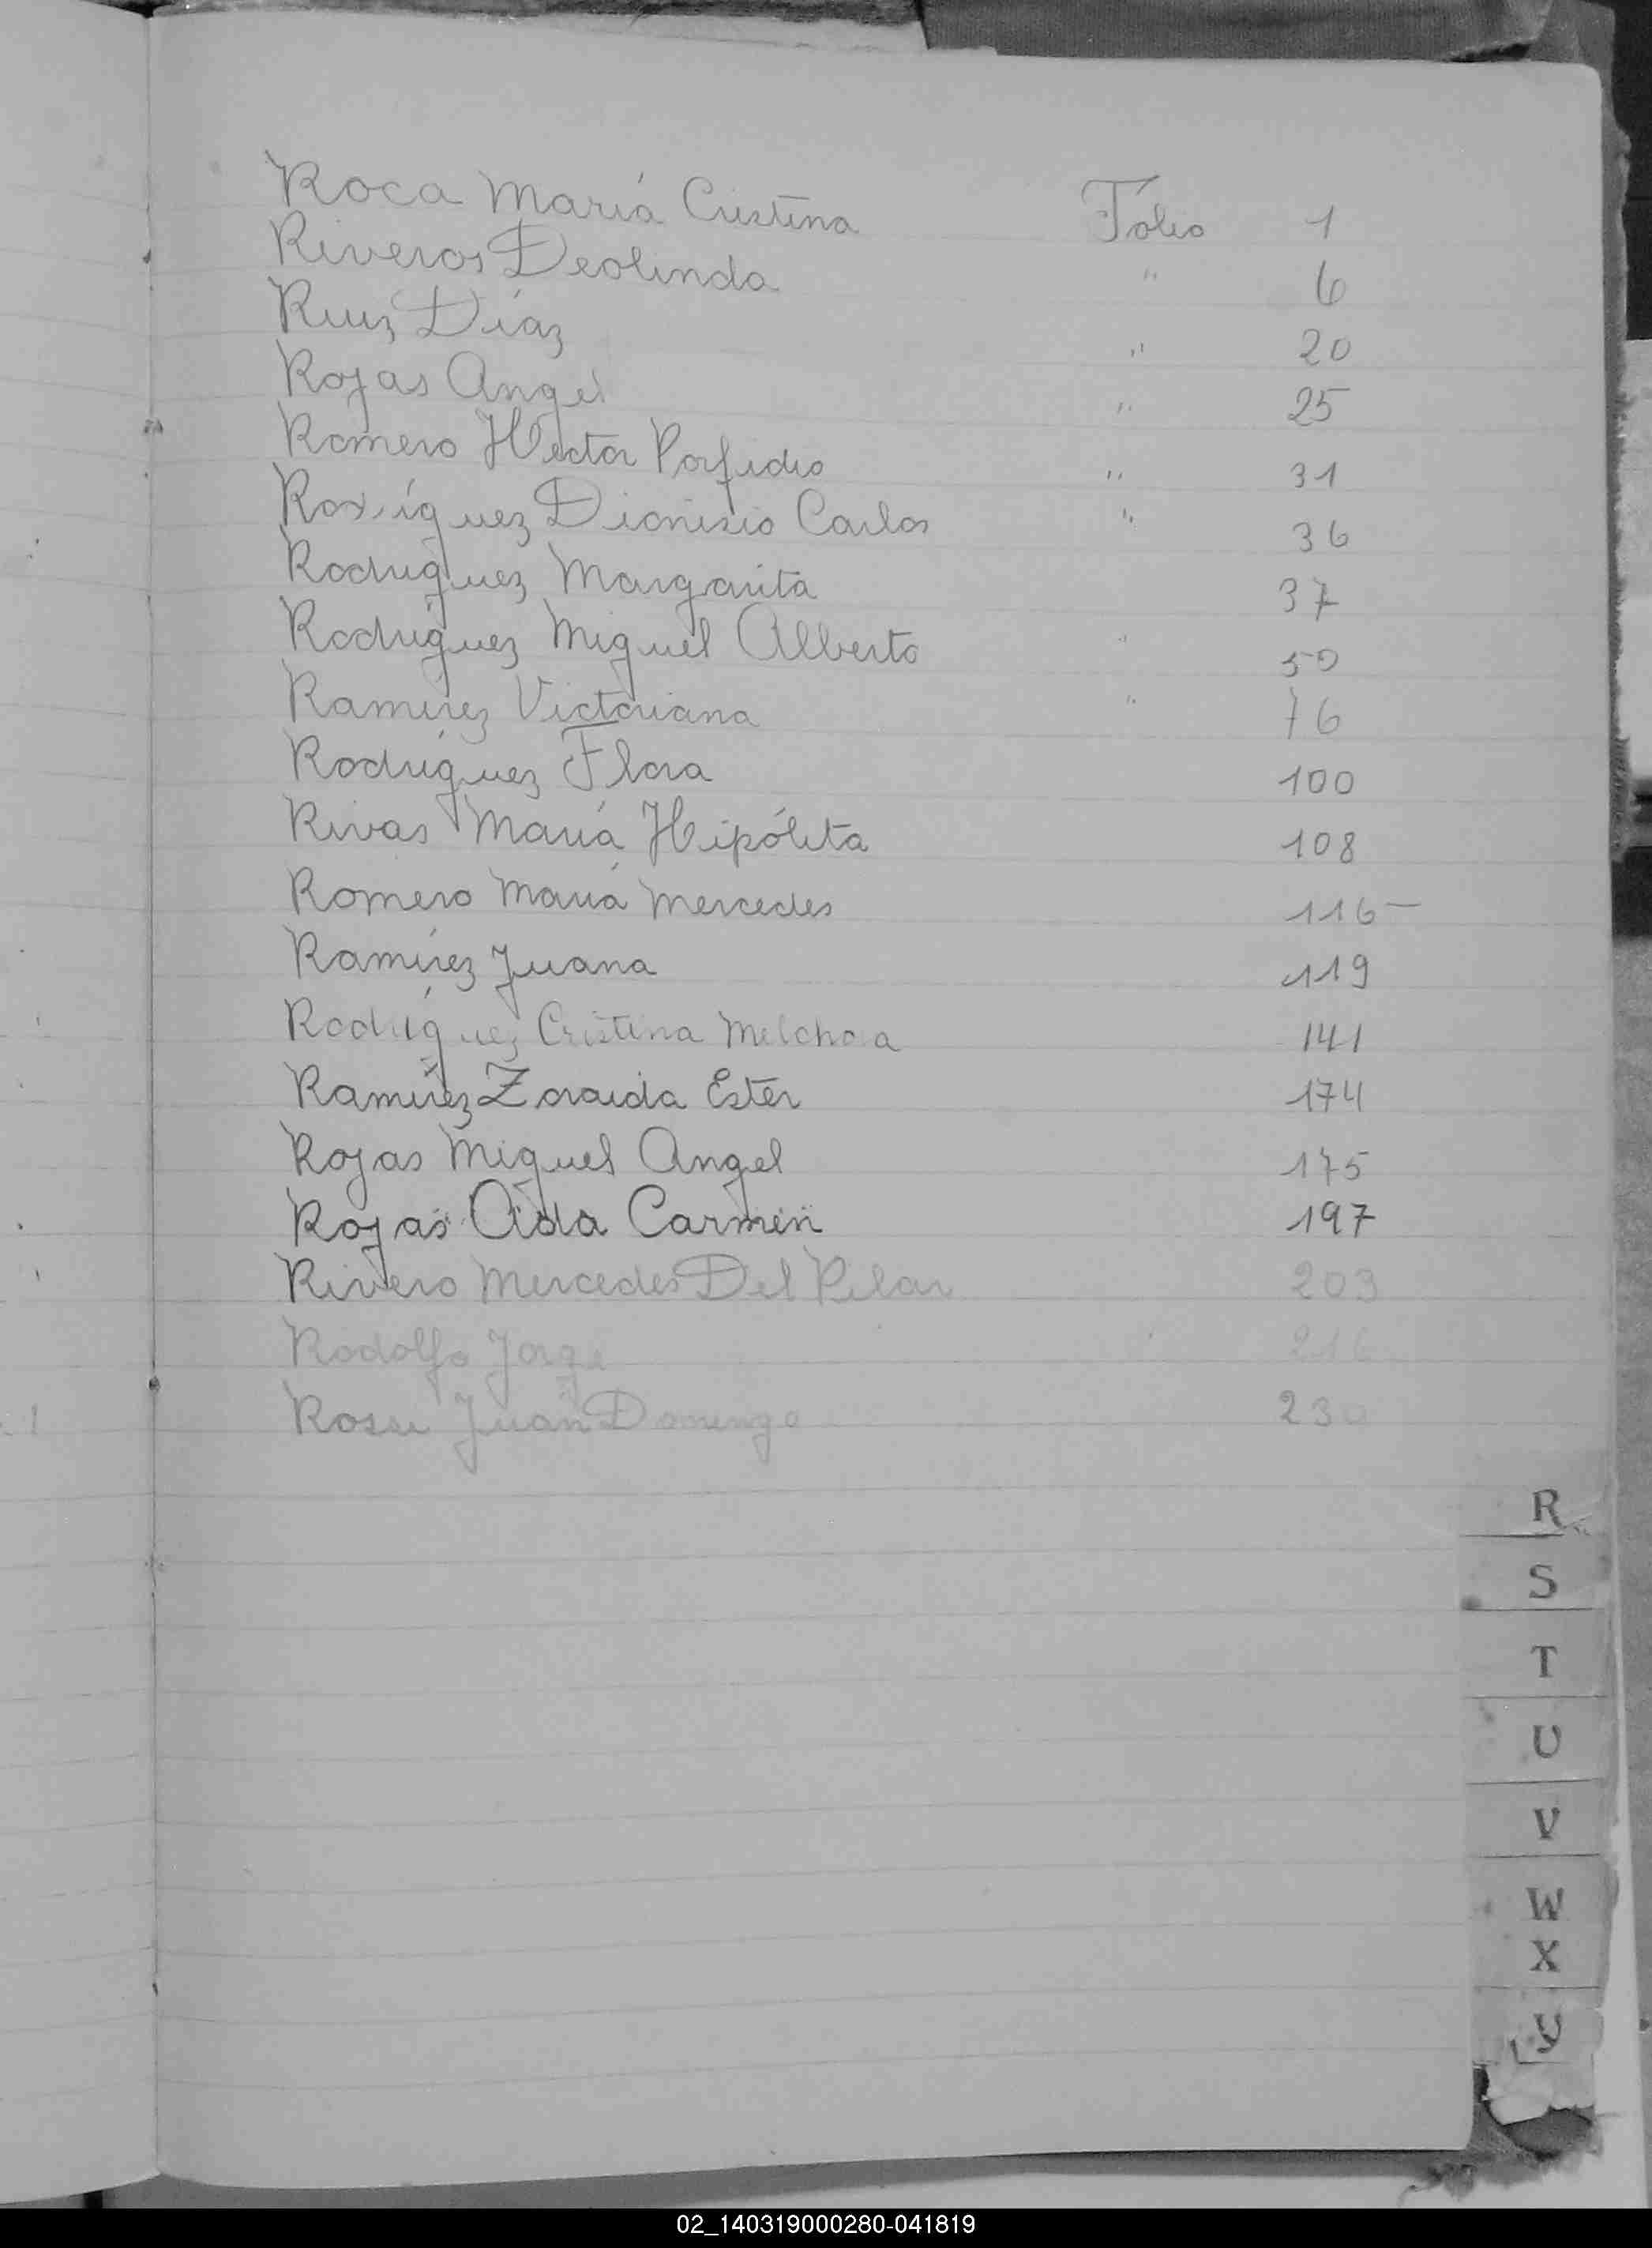 Roca María Cristina Fólio 1
Riveros Deolinda " 6
Ruiz Díaz " 20
Rojas Angel " 25
Romero Hector Porfidio " 31
Rodríguez Dionisio Carlos " 36
Rodríguez Margarita 37
Rodríguez Miguel Alberto " 50
Ramírez Victoriana " 76
Rodríguez Flora 100
Rivas María Hipólita 108
Romero María Mercedes 116 —
Ramírez Juana 119
Rodríguez Cristina Melchora 141
Ramírez Zoraida Ester 174
Rojas Miguel Angel 175
Rojas Aida Carmen 197
Rivero Mercedes Del Pilar 203
Rodolfo Jorge 216
Rossi Juan Domingo 230
R
S
T
U
V
W
X
Y
02_140319000280-041819